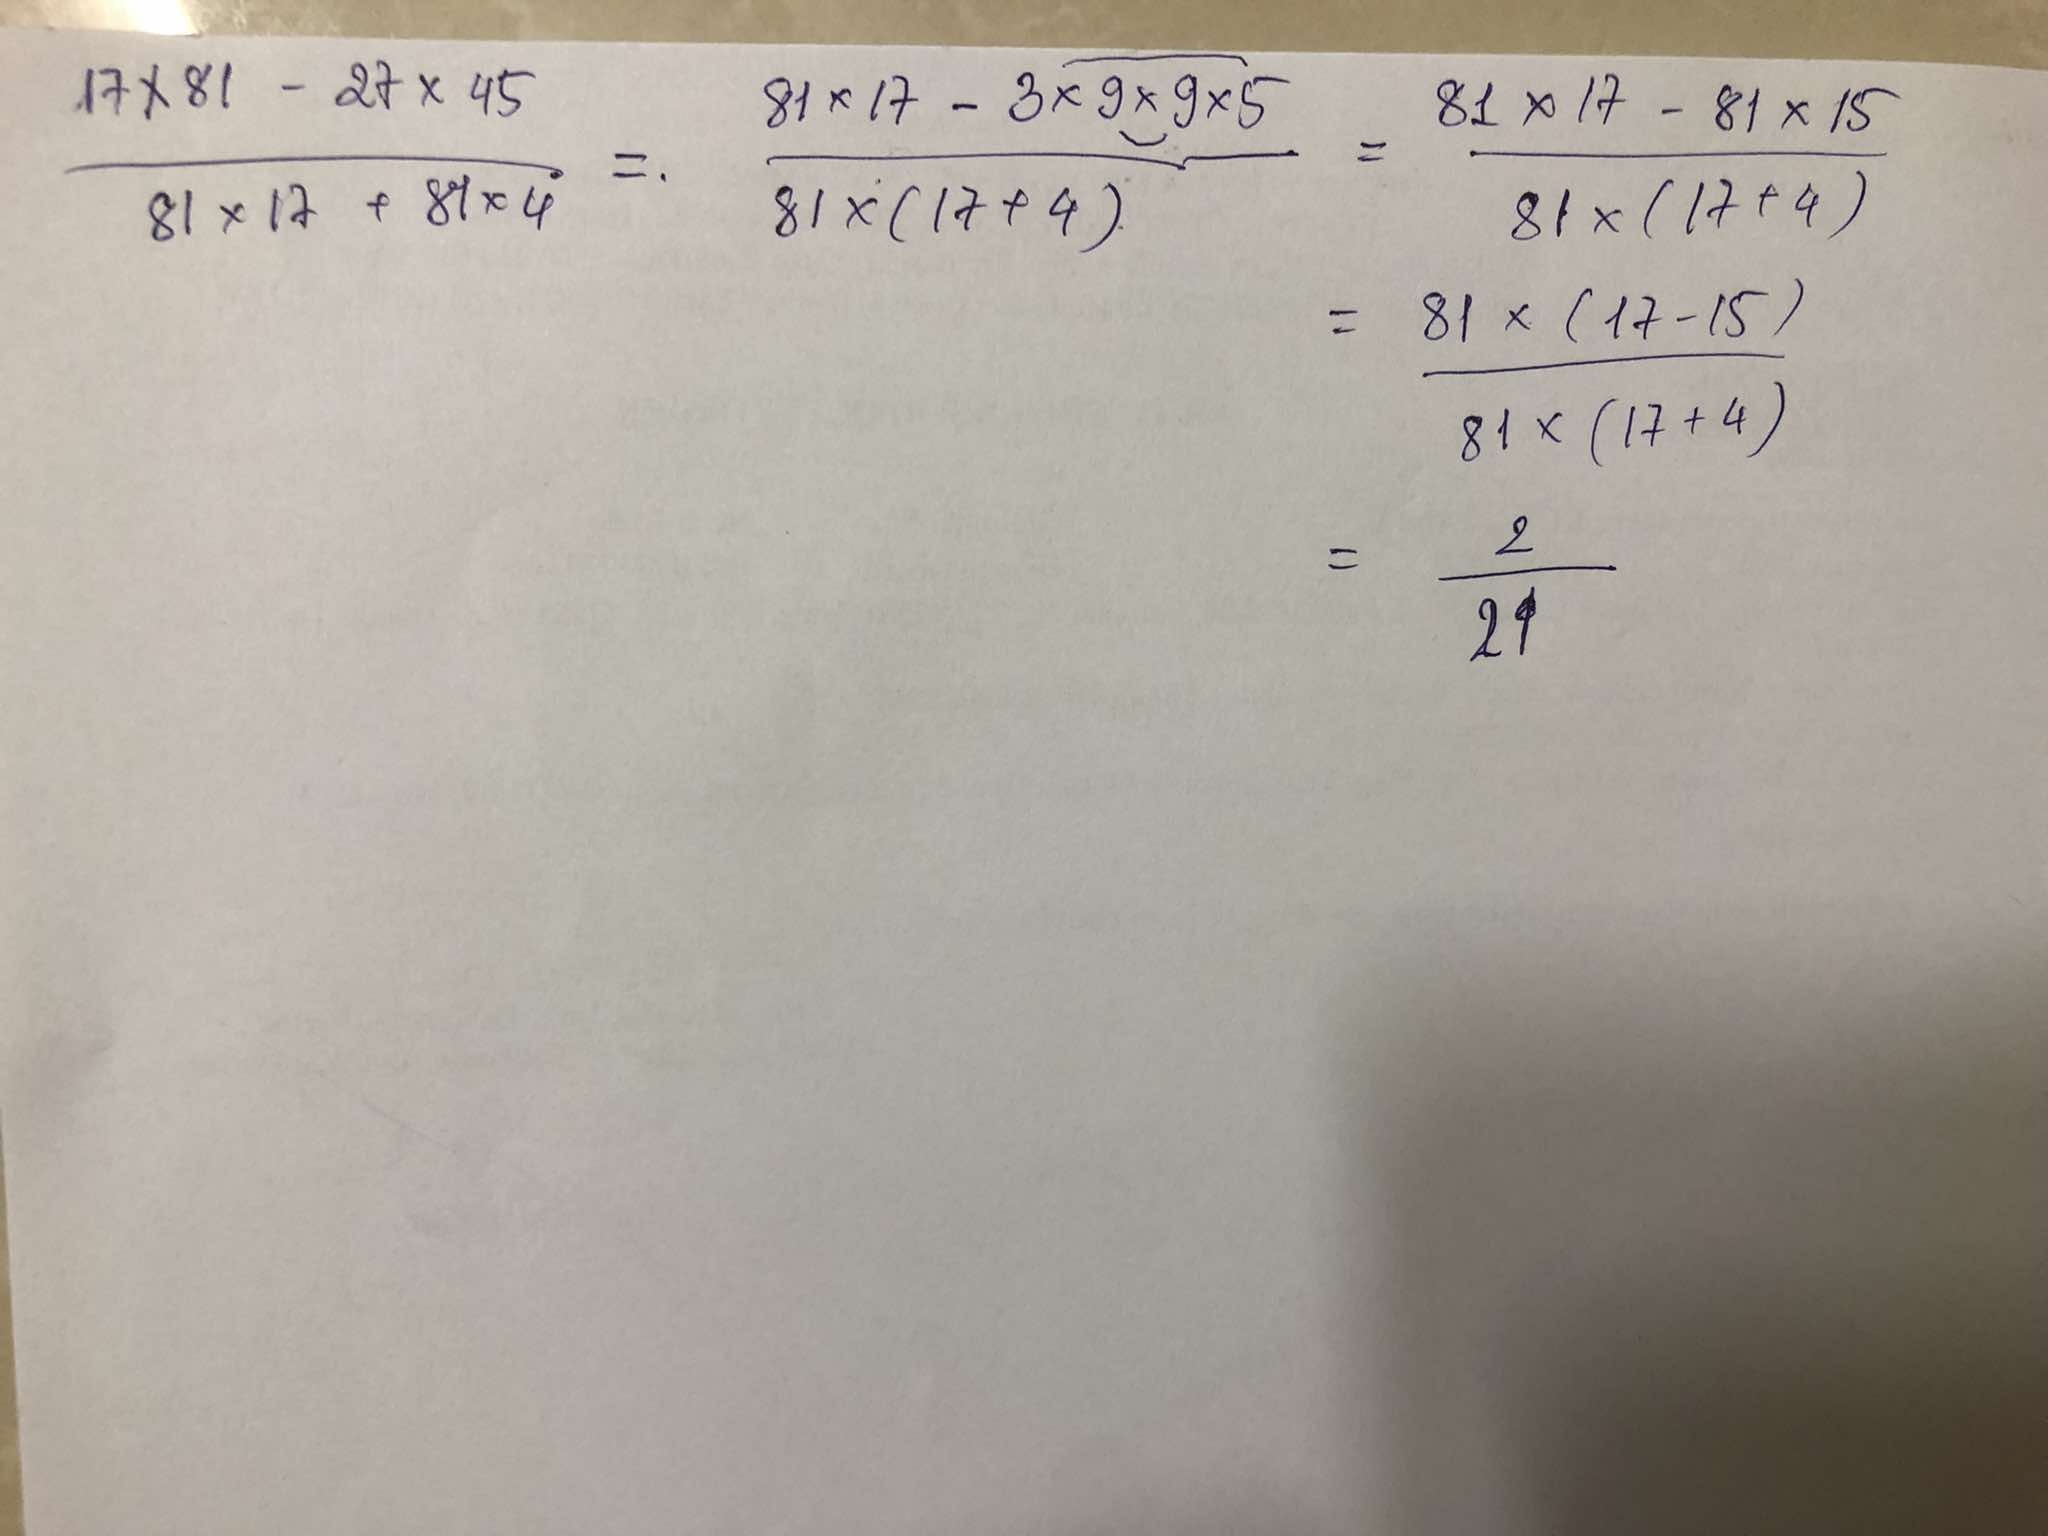 17×81 - 27×45 / 81×17 + 81×4 =. 81×17 - 3×9×9×5 / 81×(17+4). = 81×17 - 81×15 / 81×(17+4)
= 81×(17-15) / 81×(17+4)
= 2 / 21